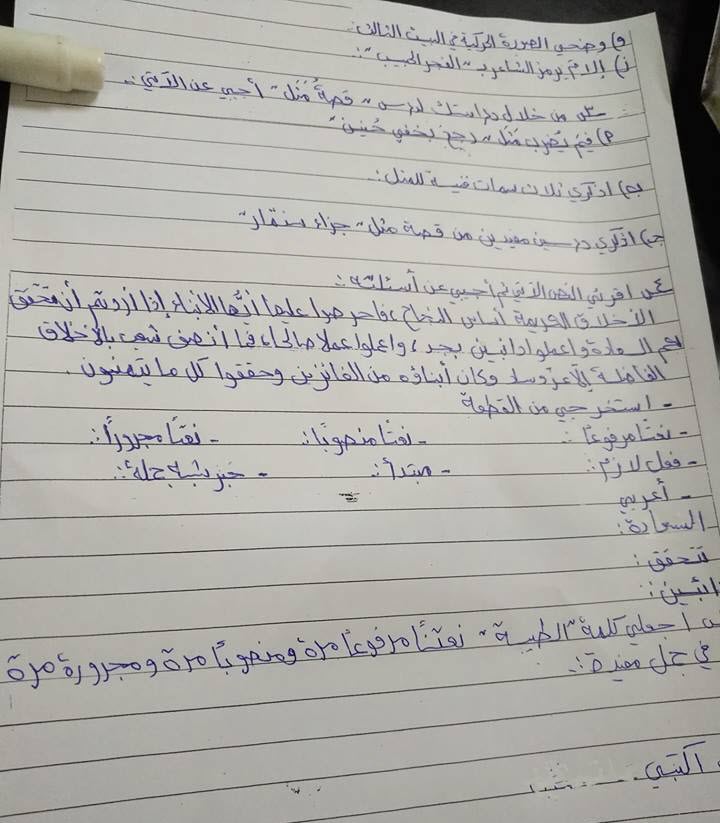 و) وضحي الصورة الحركية في البيت الثالث.
ز) إلامَ يرمز الشاعر بـ "الفجر الحبيب":
س من خلال دراستك لدرس "قصةُ مَثَل" أجيبي عن الآتي:
م) فيمَ يُضرب مَثَل "رجع بخفي حُنين"
ب) اذكري ثلاث سمات فنية للمثل:
جـ) اذكري درسين مفيدين من قصة مثل "جزاء سنمار"
س اقرئي النص الآتي ثم أجيبي عن أسئلته:
الأخلاق الكريمة أساس النجاح، فاحرصوا عليها أيُّها الأبناء إذا أردتم أن تتحقق
لكم السعادة واعملوا دائبين بجد، واعملوا عملا صالحا، فما اتصف شعب بالأخلاق
الفاضلة إلا عز وساد وكان أبناؤه من الفائزين وحققوا كل ما يتمنون.
- استخرجي من القطعة
- نعتًا مرفوعًا: - نعتًا منصوبًا: - نعتًا مجرورًا:
- فعل لازم: - مبتدأ: - خبر شبه جملة:
- أعربي
السعادة:
تتحقق:
دائبين:
س اجعلي كلمة "الطيبة" نعتًا مرفوعًا مرة ومنصوبًا مرة ومجرورة مرة
في جمل مفيدة:
اكتبي